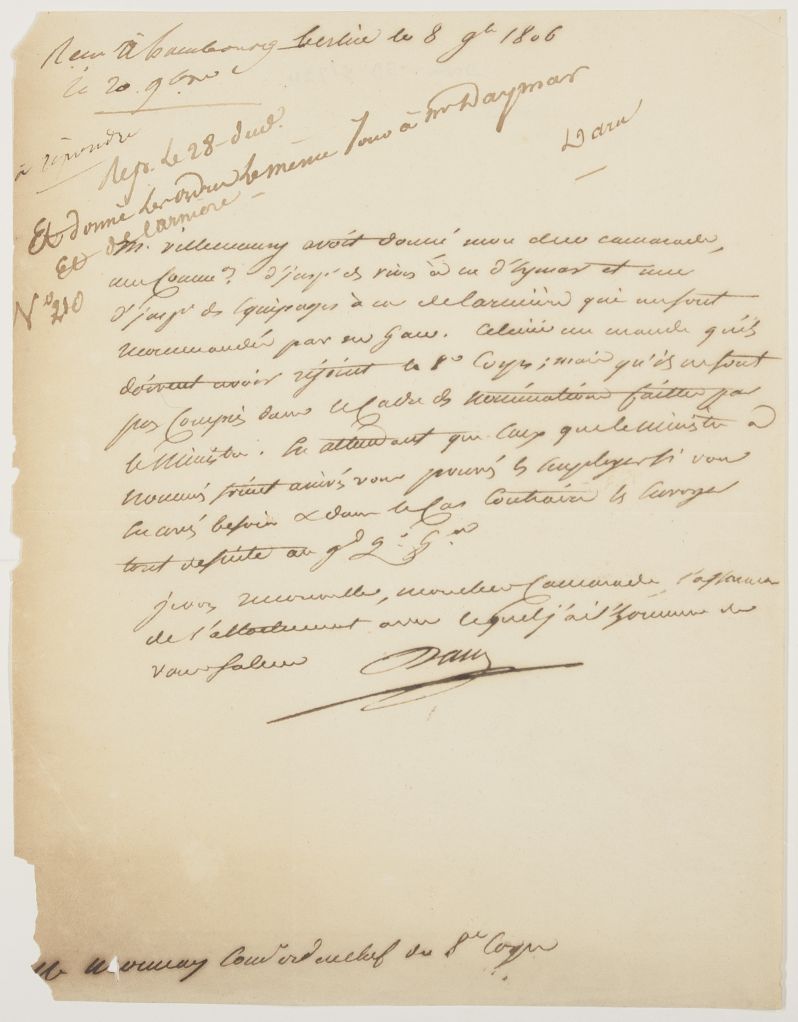 Reçu à hambourg Berlin le 8 9bre 1806
le 20 9bre
à répondre
Rep. Le 28 dud.
Et donné les ordres le même jour à Mr Daymar
Et Delarmière
Daru
N° 210
M. Villemanzy avoit donné mon cher camarade,
une Common d'insp. des vivres à m. d'Eymar et une
d'insp. des équipages à m. delarmière qui me sont
recommandés par m.
doivent avoir rejoint le 8e Corps; mais qu'ils ne sont
pas Compris dans le Cadre des nominations faittes par
le Ministre. En attendant que ceux que le Ministre a
nommés soient arrivés vous pouvés les employer si vous
en avés besoin & dans le Cas Contraire les envoyer
tout de suite au gd qr gal
je vous renouvelle, mon cher Camarade, l'assurance
de l'attachement avec lequel j'ai l'honneur de
vous saluer Daru
Mr Monnay Comre ordr en chef du 8e Corps